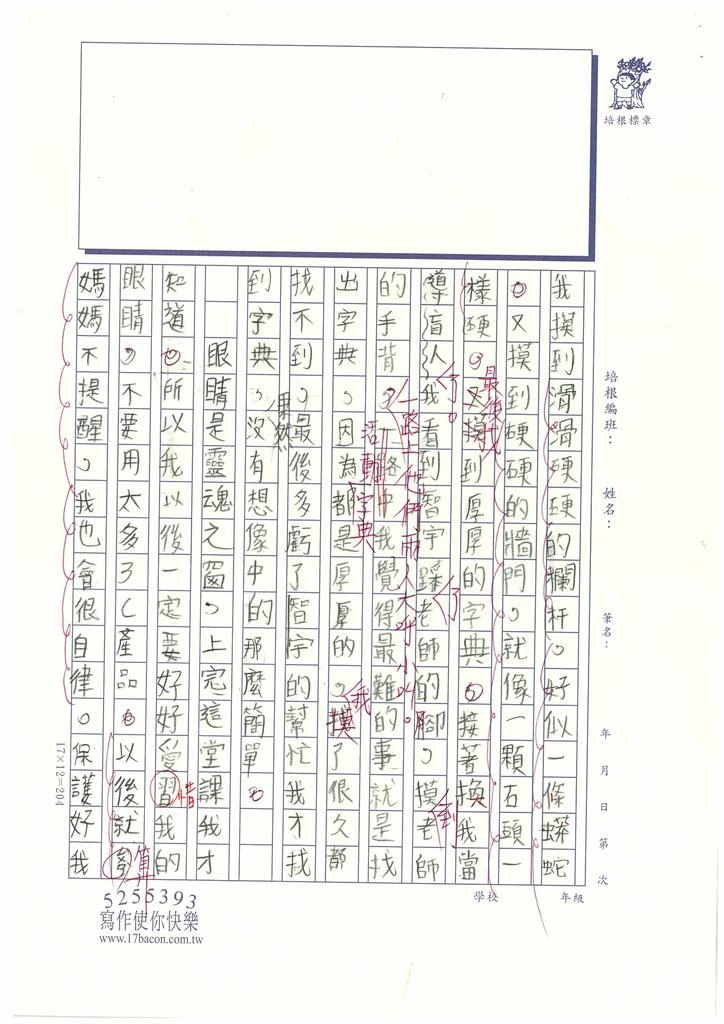 培根標章
培根編班：
姓名：
筆名：
年 月 日 第 次
學校
年級
我摸到滑滑硬硬的欄杆，好似一條蟒蛇
。又摸到硬硬的牆門，就像一顆石頭一
樣硬，又摸到厚厚的字典。接著換我當
最後我
導盲人，我看到智宇踩老師的腳，摸老師
了。
了
到
的手背，一路中我覺得最難的事就是找
一路上他們兩人大呼小叫。
出字典，因為都是厚厚的，摸了很久都
活動字典
我
找不到，最後多虧了智宇的幫忙我才找
果然
到字典，沒有想像中的那麼簡單。
眼睛是靈魂之窗，上完這堂課我才
知道。所以我以後一定要好好愛習我的
惜
眼睛，不要用太多3C產品。以後就算
算
媽媽不提醒，我也會很自律。保護好我
17×12=204
5255393
寫作使你快樂
www.17bacon.com.tw